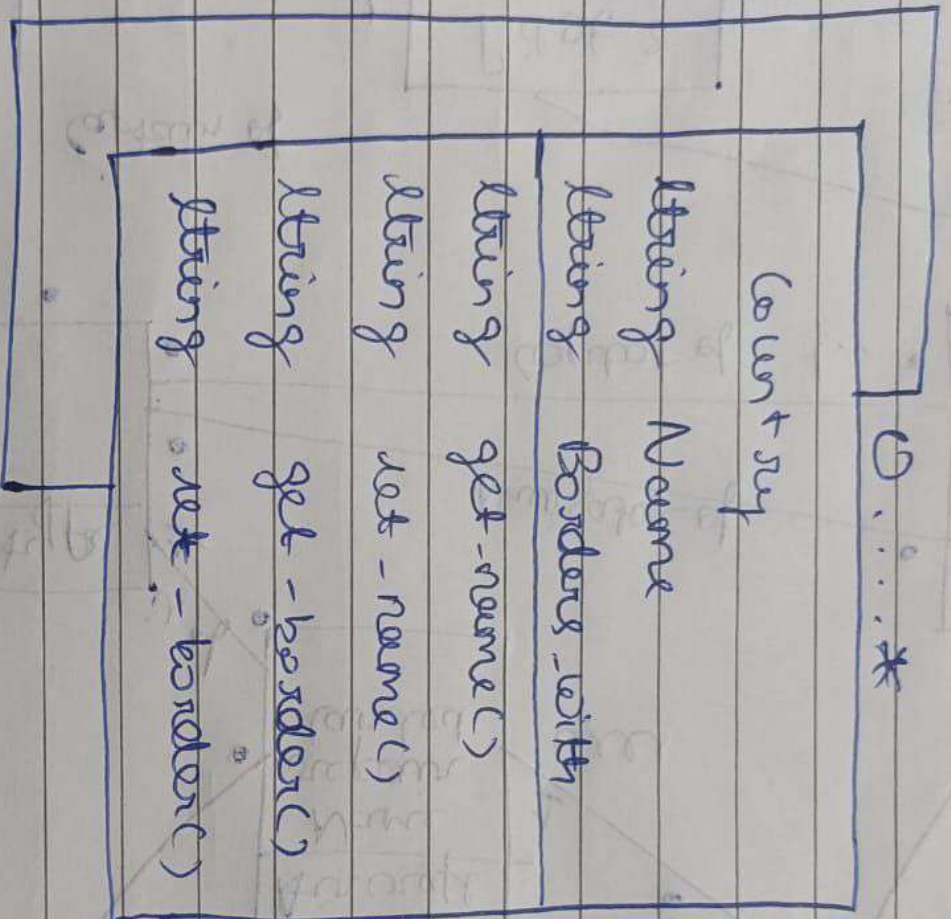 0....*
Country
String Name
String Borders_with
String get-name()
String set-name()
String get-border()
String set-border()